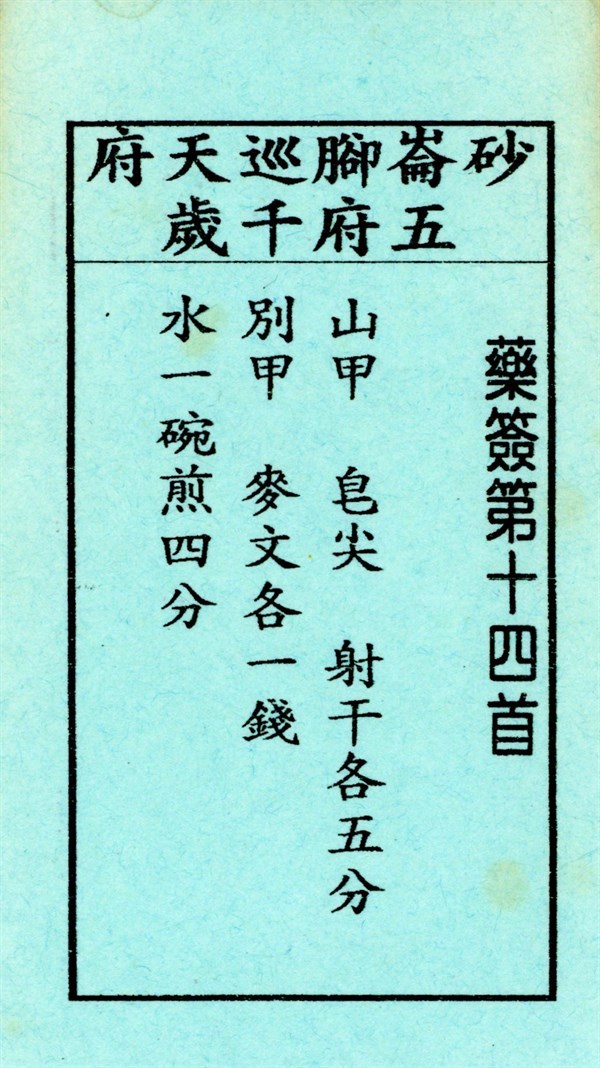 砂崙腳巡天府
五府千歲
藥簽第十四首
山甲 皂尖 射干各五分
別甲 麥文各一錢
水一碗煎四分